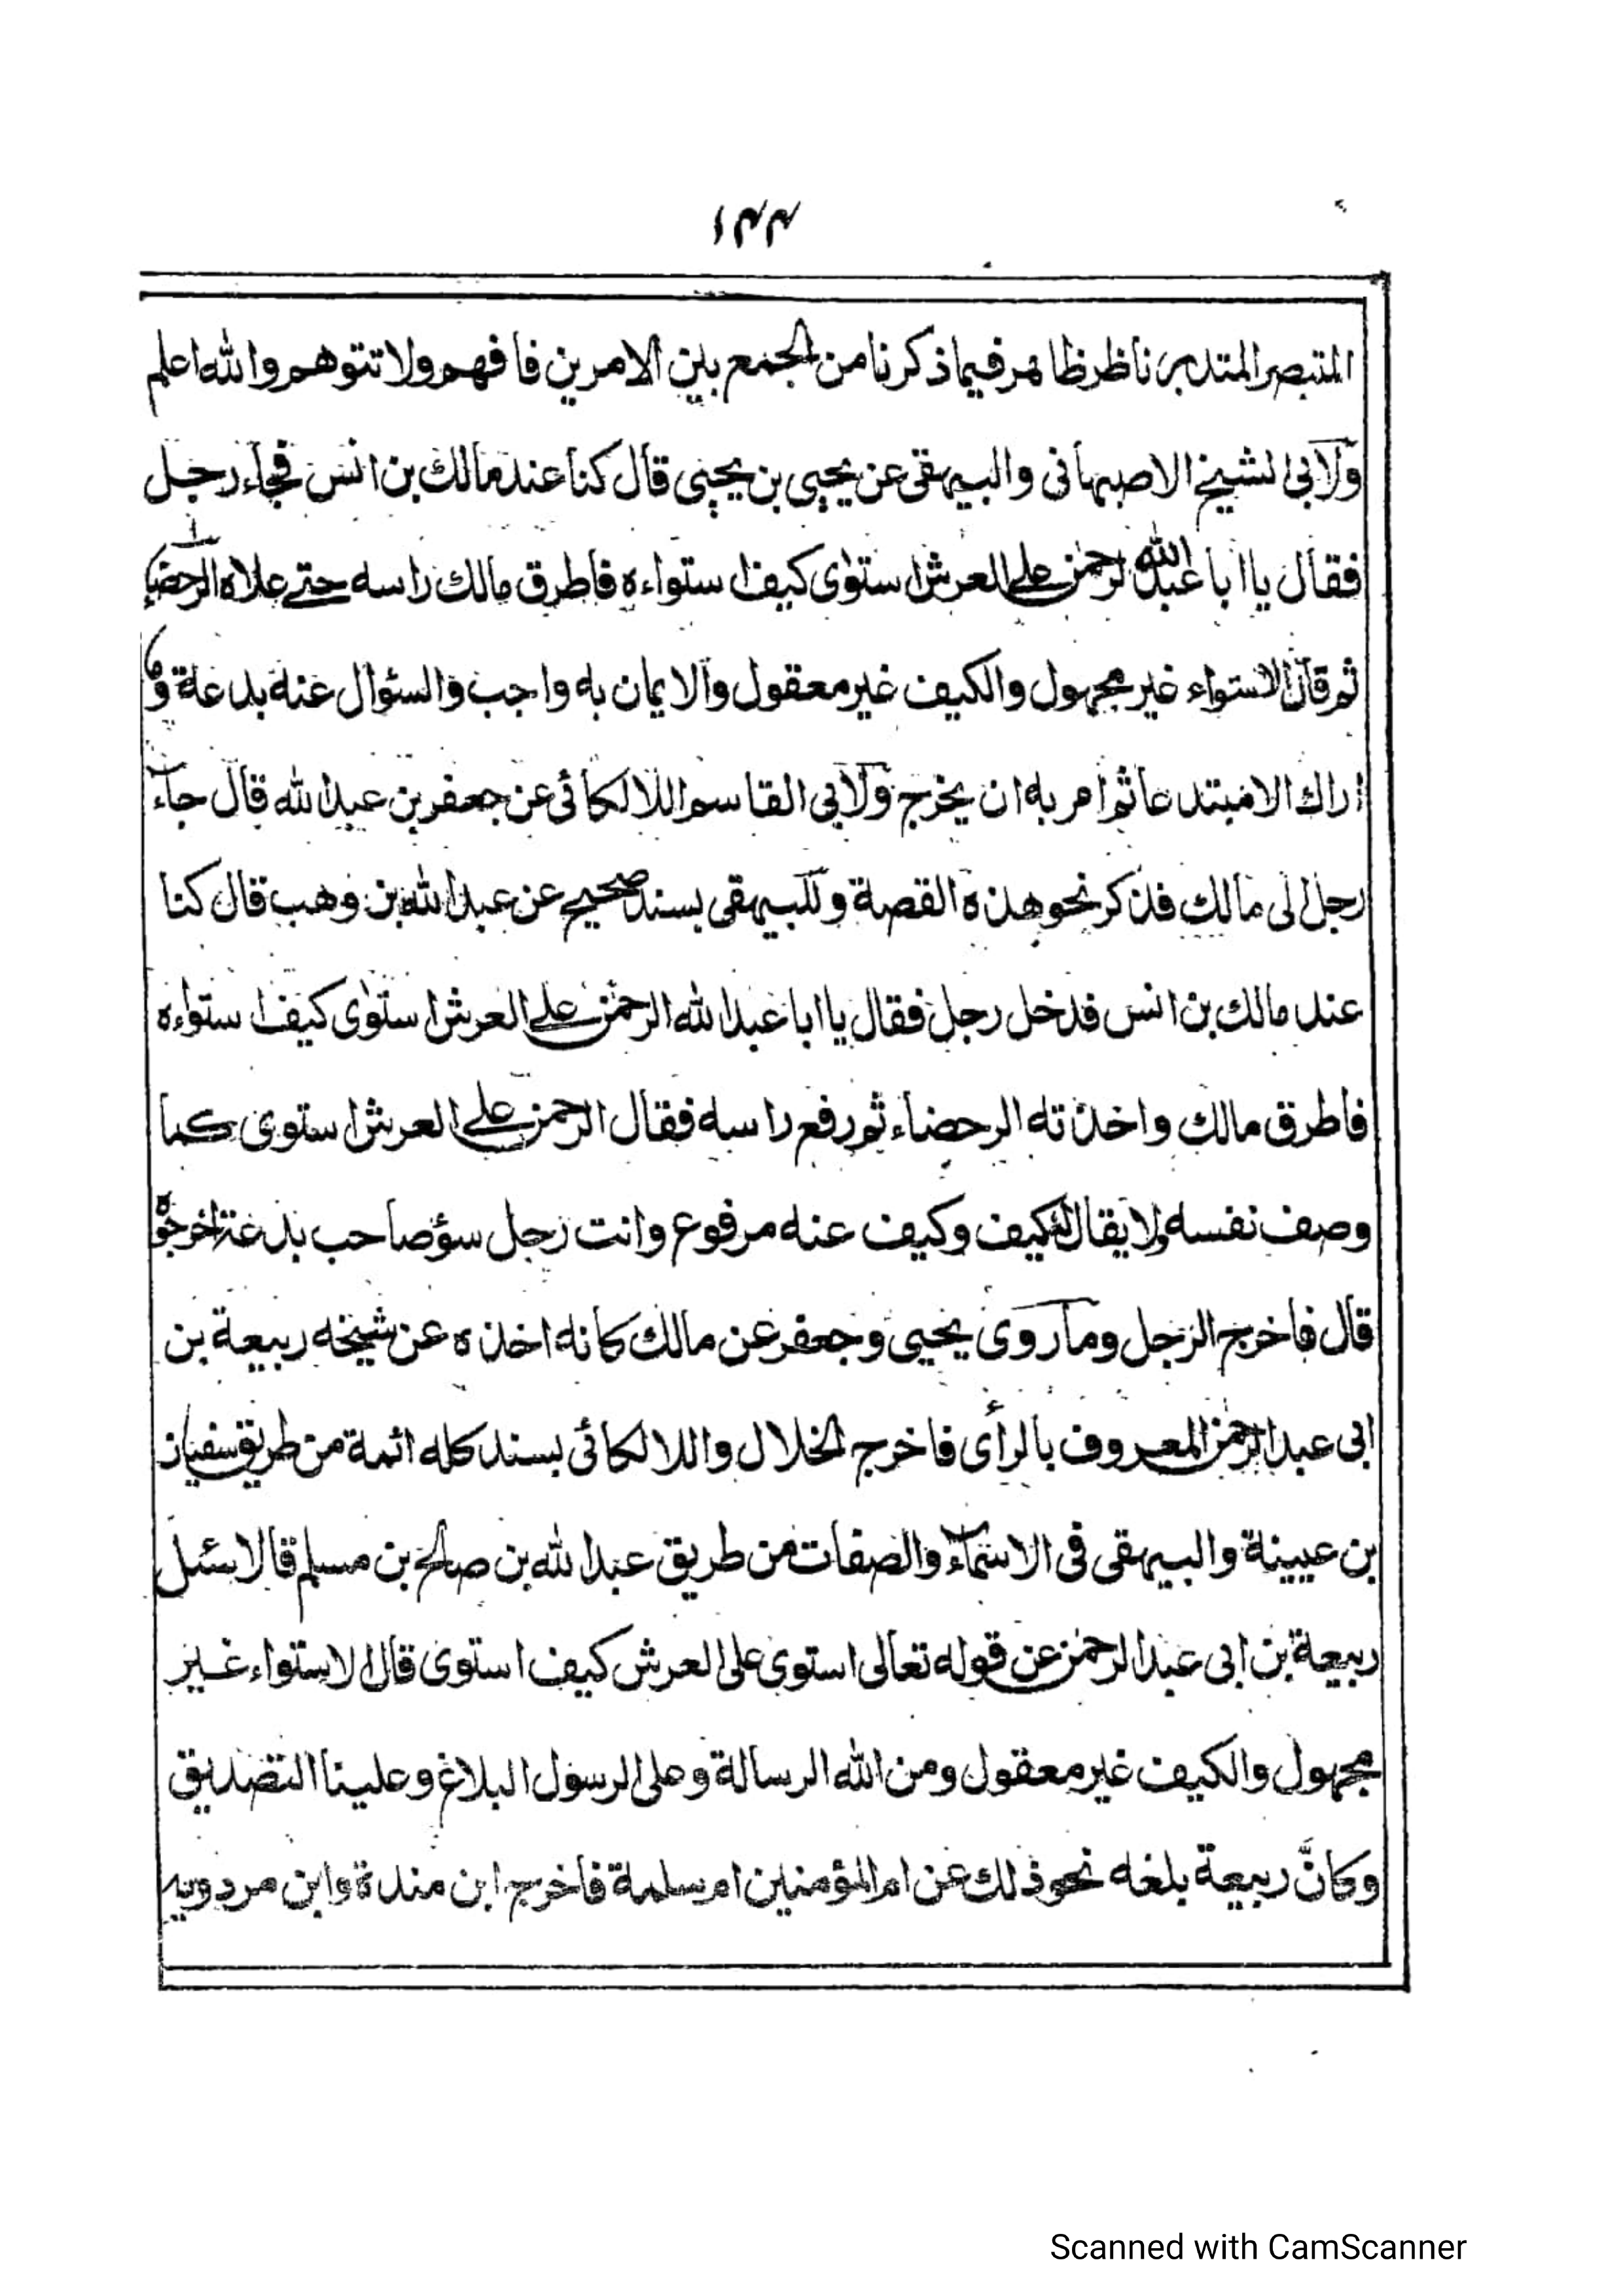 ١٣٣
المتبصر المتدبر ناظر ظاهر فيما ذكرنا من الجمع بين الامرين فافهم ولا تتوهم والله اعلم
ولابي الشيخ الاصبهانى والبيهقى عن يحيى بن يحيى قال كنا عند مالك بن انس فجاء رجل
فقال يا ابا عبد الله الرحمن على العرش استوى كيف استواءه فاطرق مالك راسه حتى علاه الرحضاء
ثم قال الاستواء غير مجهول والكيف غير معقول والايمان به واجب والسؤال عنه بدعة وما
اراك الا مبتدعا ثم امر به ان يخرج ولابي القاسم اللالكائى عن جعفر بن عبد الله قال جاء
رجل الى مالك فذكر نحو هذه القصة وللبيهقى بسند صحيح عن عبد الله بن وهب قال كنا
عند مالك بن انس فدخل رجل فقال يا ابا عبد الله الرحمن على العرش استوى كيف استواءه
فاطرق مالك واخذته الرحضاء ثم رفع راسه فقال الرحمن على العرش استوى كما
وصف نفسه ولا يقال له كيف وكيف عنه مرفوع وانت رجل سؤ صاحب بدعة اخرجوه
قال فاخرج الرجل وما روى يحيى وجعفر عن مالك كانه اخذه عن شيخه ربيعة بن
ابى عبد الرحمن المعروف بالرأى فاخرج الخلال واللالكائى بسند كله ائمة من طريق سفيان
بن عيينة والبيهقى فى الاسماء والصفات من طريق عبد الله بن صالح بن مسلم قالا سئل
ربيعة بن ابى عبد الرحمن عن قوله تعالى استوى على العرش كيف استوى قال الاستواء غير
مجهول والكيف غير معقول ومن الله الرسالة وعلى الرسول البلاغ وعلينا التصديق
وكانّ ربيعة بلغه نحو ذلك عن ام المؤمنين ام سلمة فاخرج ابن مندة وابن مردويه
Scanned with CamScanner